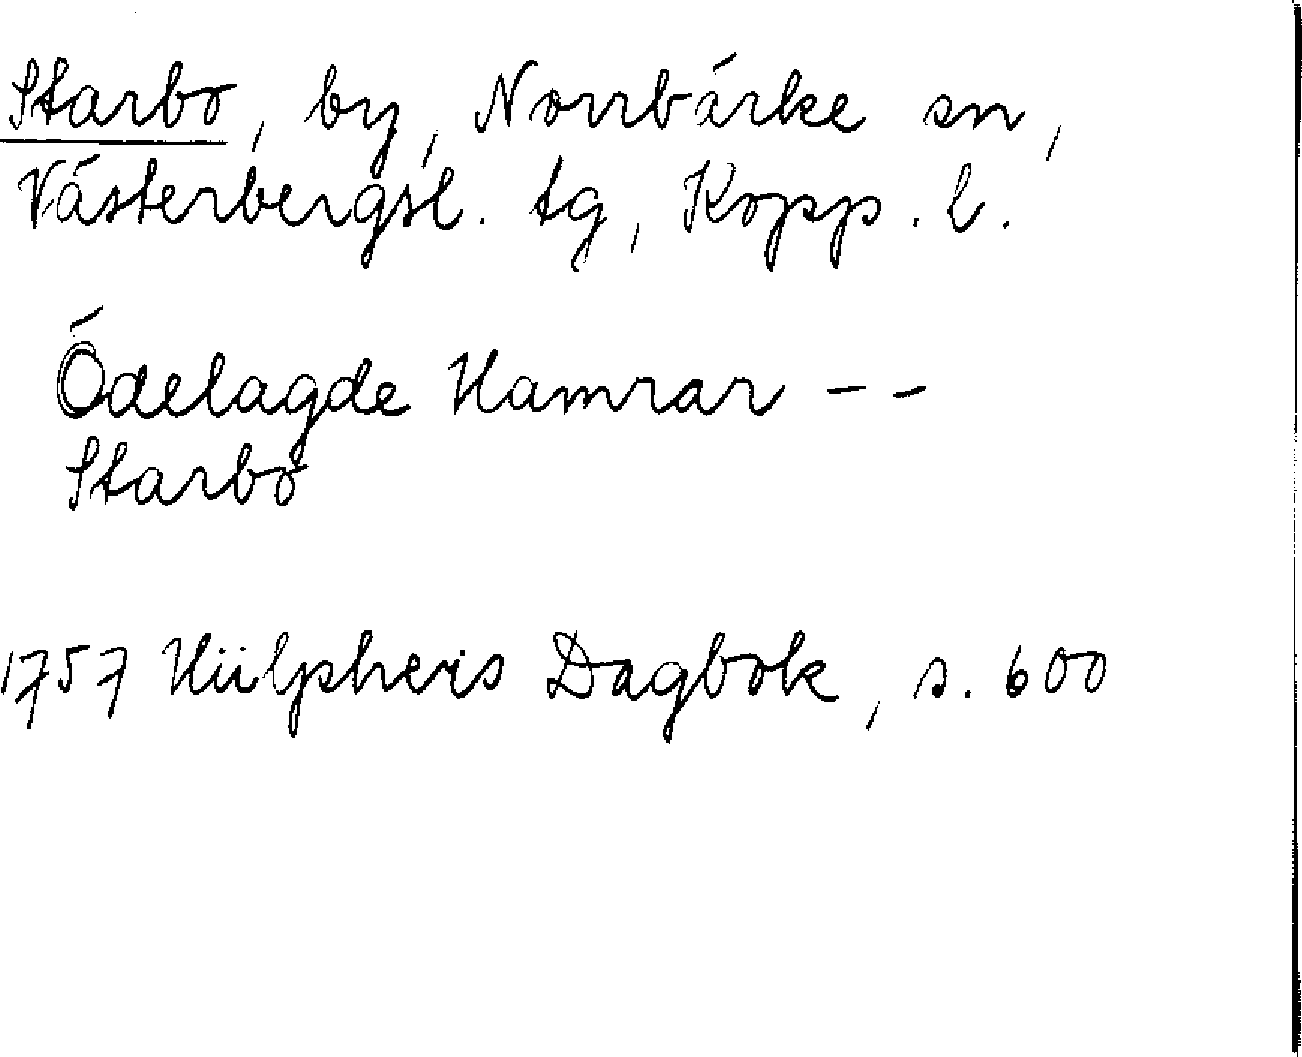 Starbo, by, Norrbärke sn,
Västerbergsl. tg, Kopp. l.
Ödelagde Hamrar - -
Starbo
1757 Hülphers Dagbok, s. 600